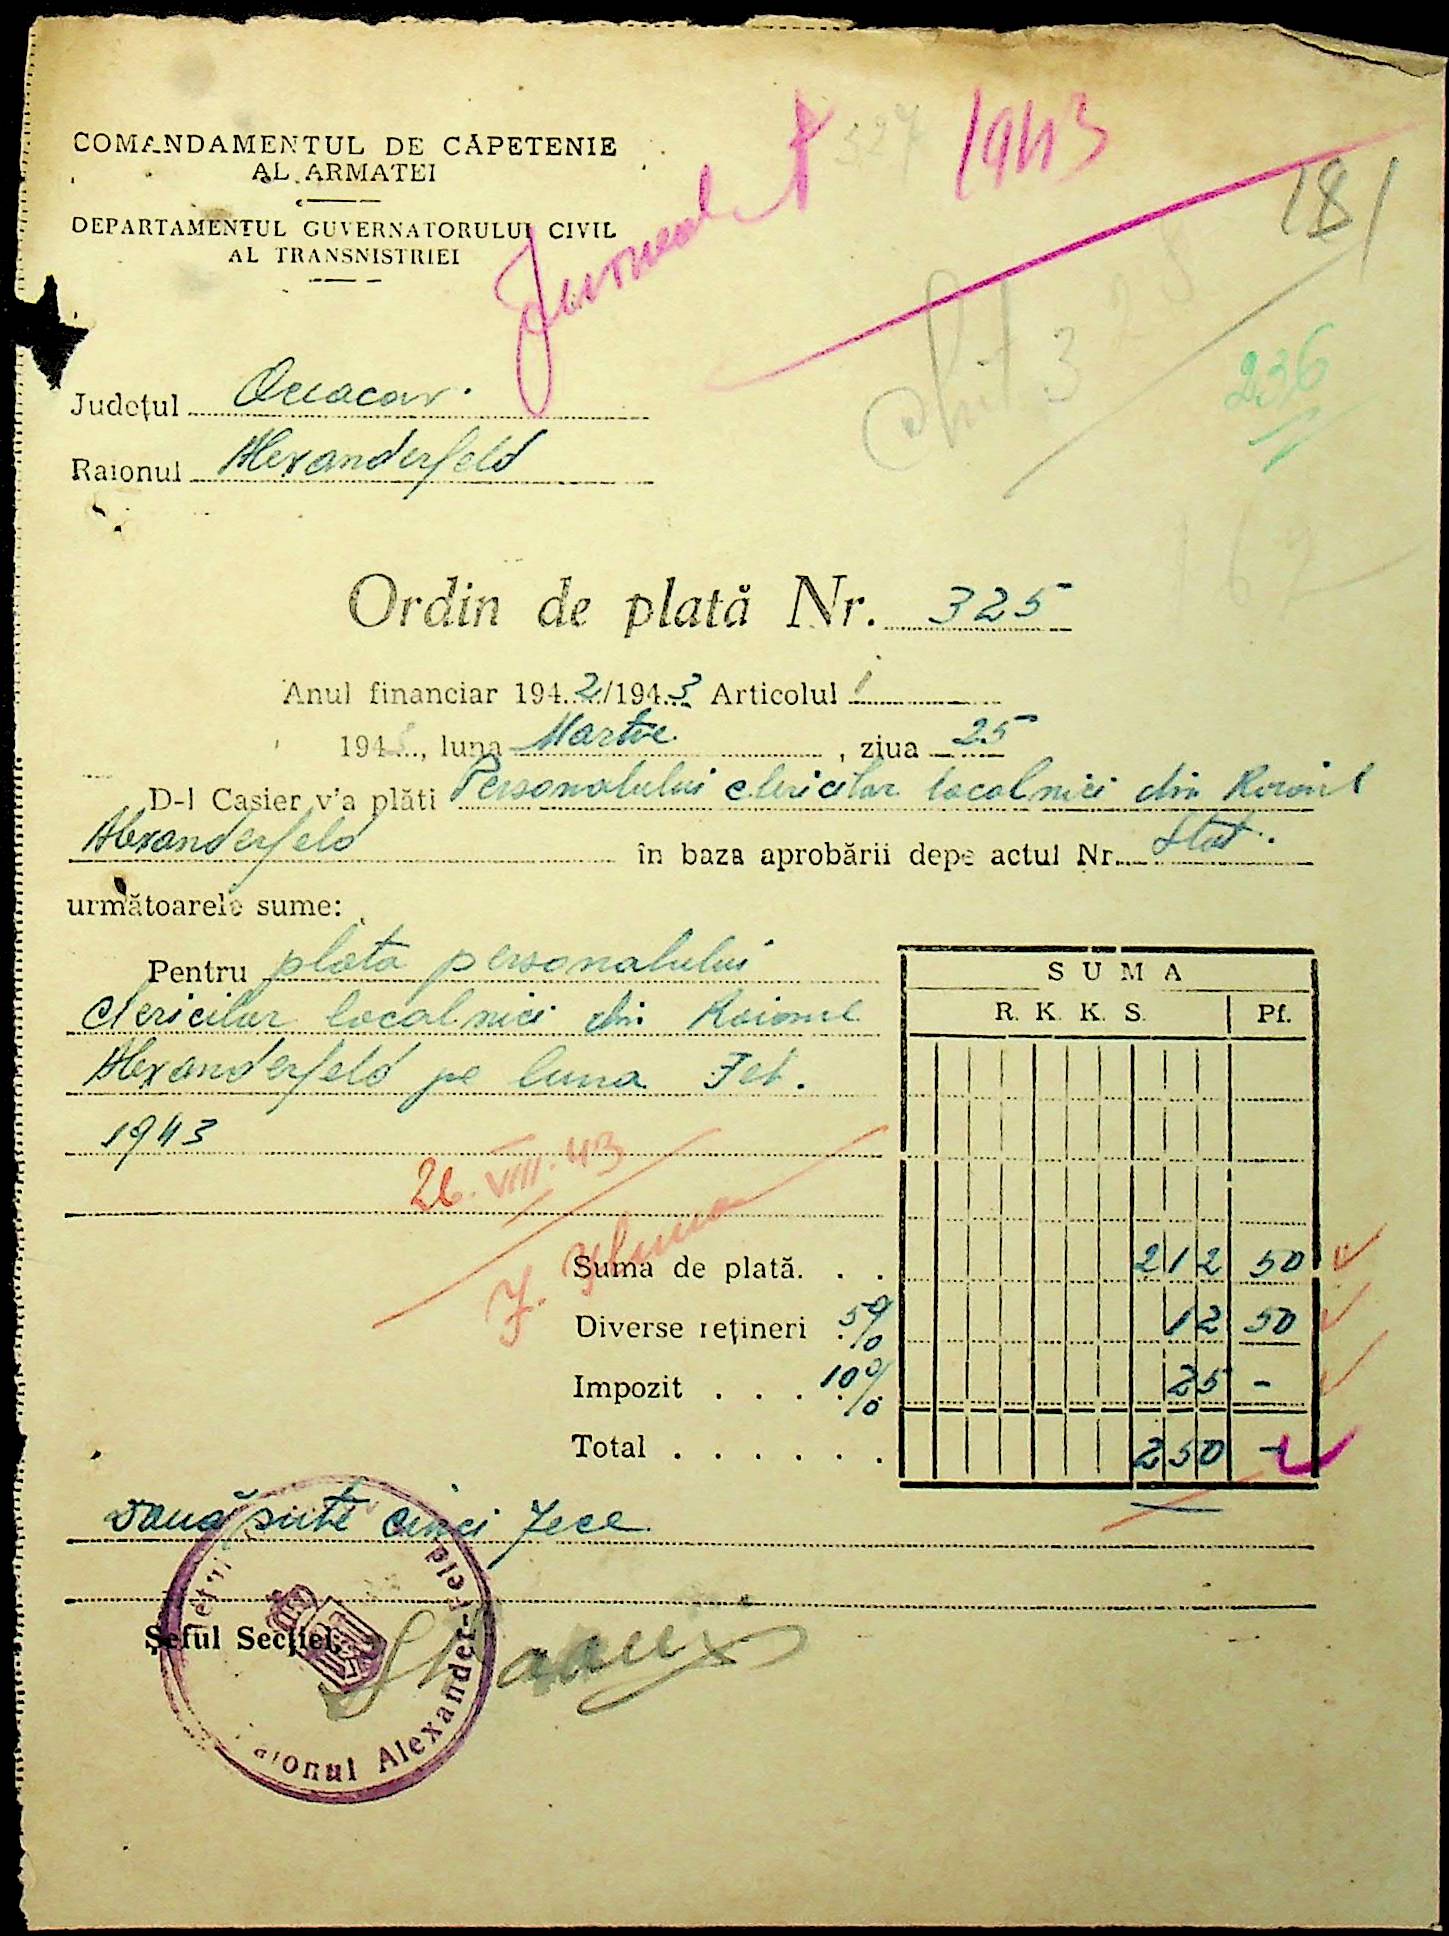 COMANDAMENTUL DE CĂPETENIE
AL ARMATEI
DEPARTAMENTUL GUVERNATORULUI CIVIL
AL TRANSNISTRIEI
327
1943
181
Chit 325
236
162
Județul Oceacov.
Raionul Alexanderfeld
Ordin de plată Nr. 325
Anul financiar 1942/1943 Articolul 1
1943, luna Martie, ziua 25
D-l Casier v'a plăti Personalului clericilor localnici din Raionul
Alexanderfeld în baza aprobării depe actul Nr. Stat.
următoarele sume:
Pentru plata personalului
clericilor localnici din Raionul
Alexanderfeld pe luna Feb.
1943
SUMA
R. K. K. S. Pf.
26.VIII.43
Suma de plată. . . 212 50
Diverse rețineri 5% 12 50
Impozit . . . 10% 25 -
Total . . . . . . 250 -
Două sute cinci zece
Șeful Secției,
Raionul Alexander-Feld